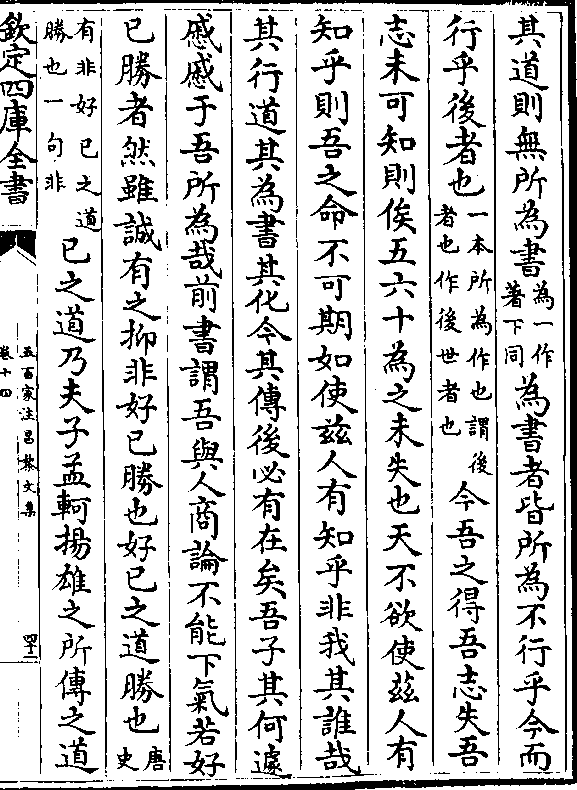 其道則無所為書為一作著下同為書者皆所為不行乎今而
行乎後者也一本所為作也謂後者也作後世者也今吾之得吾志失吾
志未可知則俟五六十為之未失也天不欲使茲人有
知乎則吾之命不可期如使茲人有知乎非我其誰哉
其行道其為書其化今其傳後必有在矣吾子其何遽
戚戚于吾所為哉前書謂吾與人商論不能下氣若好
已勝者然雖誠有之抑非好已勝也好已之道勝也唐史
有非好已之道勝也一句非已之道乃夫子孟軻揚雄之所傳之道
欽定四庫全書
五百家注昌黎文集
卷十四